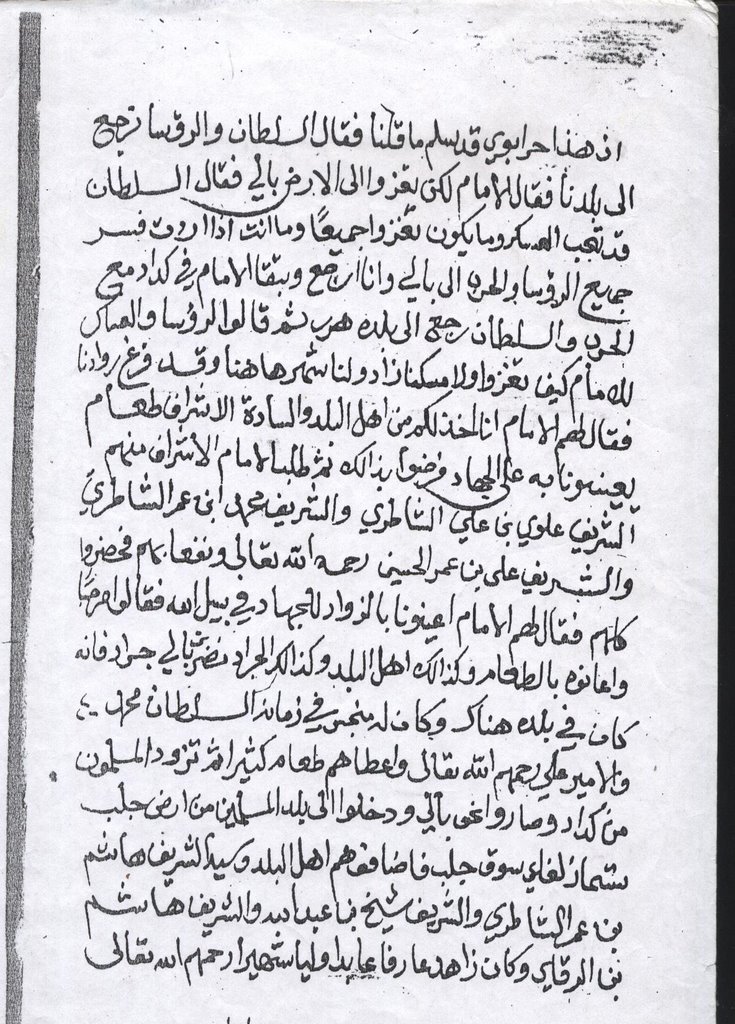 ان هذا حرابوي قد سلم ما قلنا فقال السلطان والرؤسا نرجع
الى بلدنا فقال الامام لكن يغزوا الى الارض بالي فقال السلطان
قد تعب العسكر وما يكون نغزوا جميعًا وما انت اذا اردت فسر
جميع الرؤسا والحرب الى بالي وانا ارجع وبقا الامام في كداد مع
الحرب والسلطان رجع الى بلده هرر ثم قالوا الرؤسا والعساكر
للامام كيف نغزوا ولا مسكنا زاد ولنا شهر هاهنا وقد فرغ زوادنا
فقال لهم الامام انا اخذ لكم من اهل البلد والسادة الاشراف طعام
يعينونا به على الجهاد فرضوا بذالك ثم طلب الامام الاشراف منهم
الشريف علوي بن علي الشاطري والشريف محمد ابن عمر الشاطري
والشريف علي بن عمر الحسين رحمه الله تعالى ونفعنا بهم فحضروا
كلهم فقال لهم الامام اعينونا بالزواد للجهاد في سبيل الله فقالوا مرحبًا
واعانوه بالطعام وكذالك اهل البلد وكذالك الجراد نصر بالي جراد فانه
كان في بلده هناك وكان له متجر في زمان السلطان محمد
والامير علي رحمهم الله تعالى واعطاهم طعام كثير ثم تزود المسلمون
من كداد وصاروا نحو بالي ودخلوا الى بلد المسلمين من ارض جلب
تسمى سوق جلب فاضافوهم اهل البلد وسيد الشريف هاشم
بن عمر الشاطري والشريف شيخ بن عبد الله والشريف هاشم
بن وكان زاهد عارفا عابدا وليا شهيرا رحمهم الله تعالى